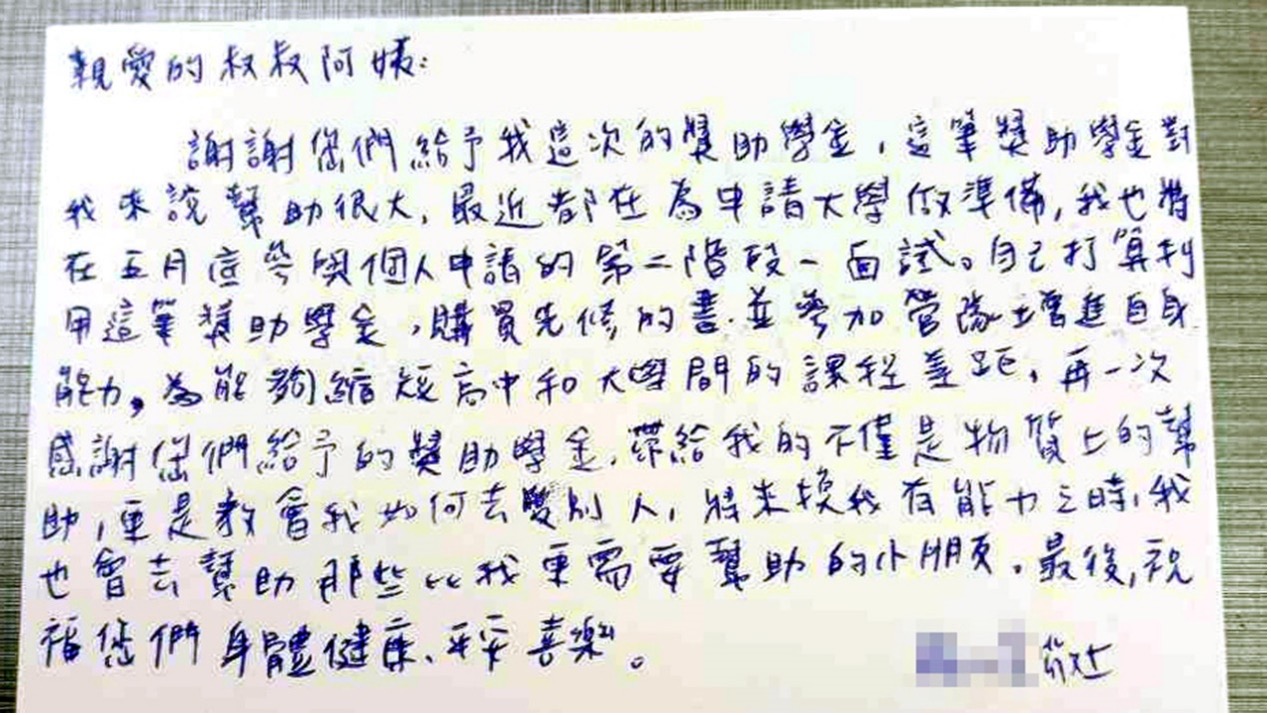 親愛的叔叔阿姨:
謝謝您們給予我這次的獎助學金,這筆獎助學金對
我來說幫助很大,最近都在為申請大學做準備,我也將
在五月底參與個人申請的第二階段-面試。自己打算利
用這筆獎助學金,購買先修的書、並參加營隊增進自身
能力,為能夠縮短高中和大學間的課程差距,再一次
感謝您們給予的獎助學金,帶給我的不僅是物質上的幫
助,更是教會我如何去愛別人,將來換我有能力之時,我
也會去幫助那些比我更需要幫助的小朋友。最後,祝
福您們身體健康、平安喜樂。
敬上